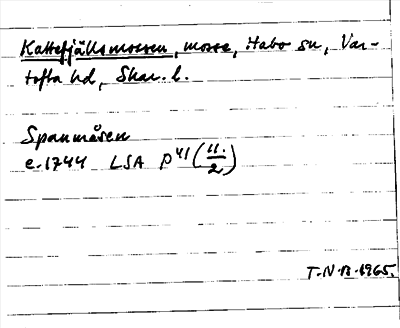 Kattefjällsmossen, mosse, Habo sn, Var-
tofta hd, Skar. l.
Spanmåsen
e. 1744 LSA P 41 (11/2)
T. N-n. 1965.